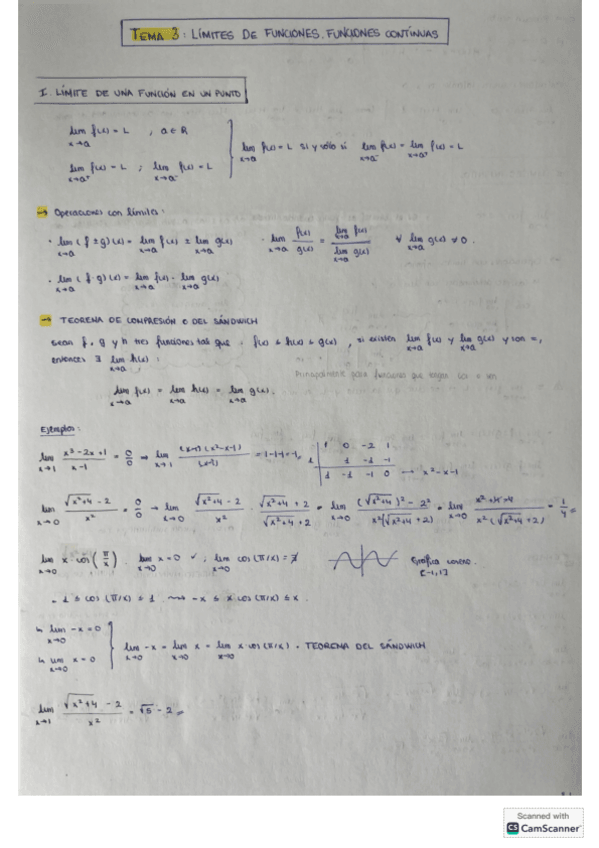 TEMA 3: LÍMITES DE FUNCIONES. FUNCIONES CONTÍNUAS
I. LÍMITE DE UNA FUNCIÓN EN UN PUNTO
lim x→a f(x) = L , a ∈ R
lim x→a⁺ f(x) = L ; lim x→a⁻ f(x) = L } lim x→a f(x) = L si y sólo si lim x→a⁻ f(x) = lim x→a⁺ f(x) = L
→ Operaciones con límites:
· lim x→a (f ± g)(x) = lim x→a f(x) ± lim x→a g(x) · lim x→a f(x)/g(x) = lim x→a f(x) / lim x→a g(x) ∀ lim x→a g(x) ≠ 0.
· lim x→a (f · g)(x) = lim x→a f(x) · lim x→a g(x)
→ TEOREMA DE COMPRESIÓN O DEL SÁNDWICH
sean f, g y h tres funciones tal que: f(x) ≤ h(x) ≤ g(x), si existen lim x→a f(x) y lim x→a g(x) y son =,
entonces ∃ lim x→a h(x):
Principalmente para funciones que tengan cos o sen
lim x→a f(x) = lim x→a h(x) = lim x→a g(x).
Ejemplos:
lim x→1 (x³-2x+1)/(x-1) = 0/0 → lim x→1 (x-1)(x²-x-1)/(x-1) = 1-1-1 = -1,
1 0 -2 1
1 1 1 -1
1 1 -1 0 → x²-x-1
lim x→0 (√(x²+4) - 2)/x² = 0/0 → lim x→0 (√(x²+4) - 2)/x² · (√(x²+4) + 2)/(√(x²+4) + 2) = lim x→0 ((√(x²+4))² - 2²)/(x²(√(x²+4) + 2)) = lim x→0 (x²+4-4)/(x²(√(x²+4) + 2)) = 1/4 =
lim x→0 x · cos(π/x) . lim x→0 x = 0 ✓ ; lim x→0 cos(π/x) = ∄ Gráfica coseno.
[-1,1]
- 1 ≤ cos(π/x) ≤ 1 ⇝ -x ≤ x cos(π/x) ≤ x.
↳ lim x→0 -x = 0
↳ lim x→0 x = 0 } lim x→0 -x = lim x→0 x = lim x→0 x cos(π/x) . TEOREMA DEL SÁNDWICH
lim x→1 (√(x²+4) - 2)/x² = √5 - 2 =
Scanned with
CS CamScanner